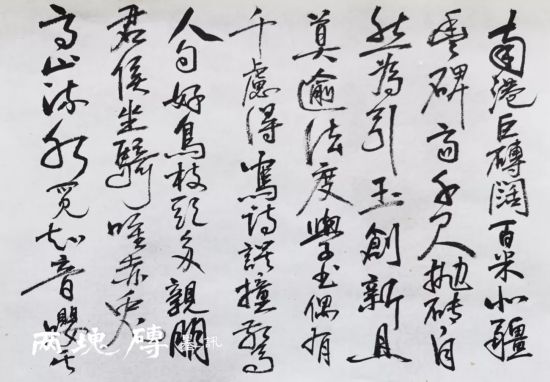 南港巨磚阔百米北疆
豐碑高千尺拋砖自
然為引玉創新且
莫逾法度學書偶有
千慮得寫詩誤撞驚
人句好鳥枝頭多親朋
君侯坐騎唯赤兔
高山流水覓知音嚶其
兩塊磚墨訊